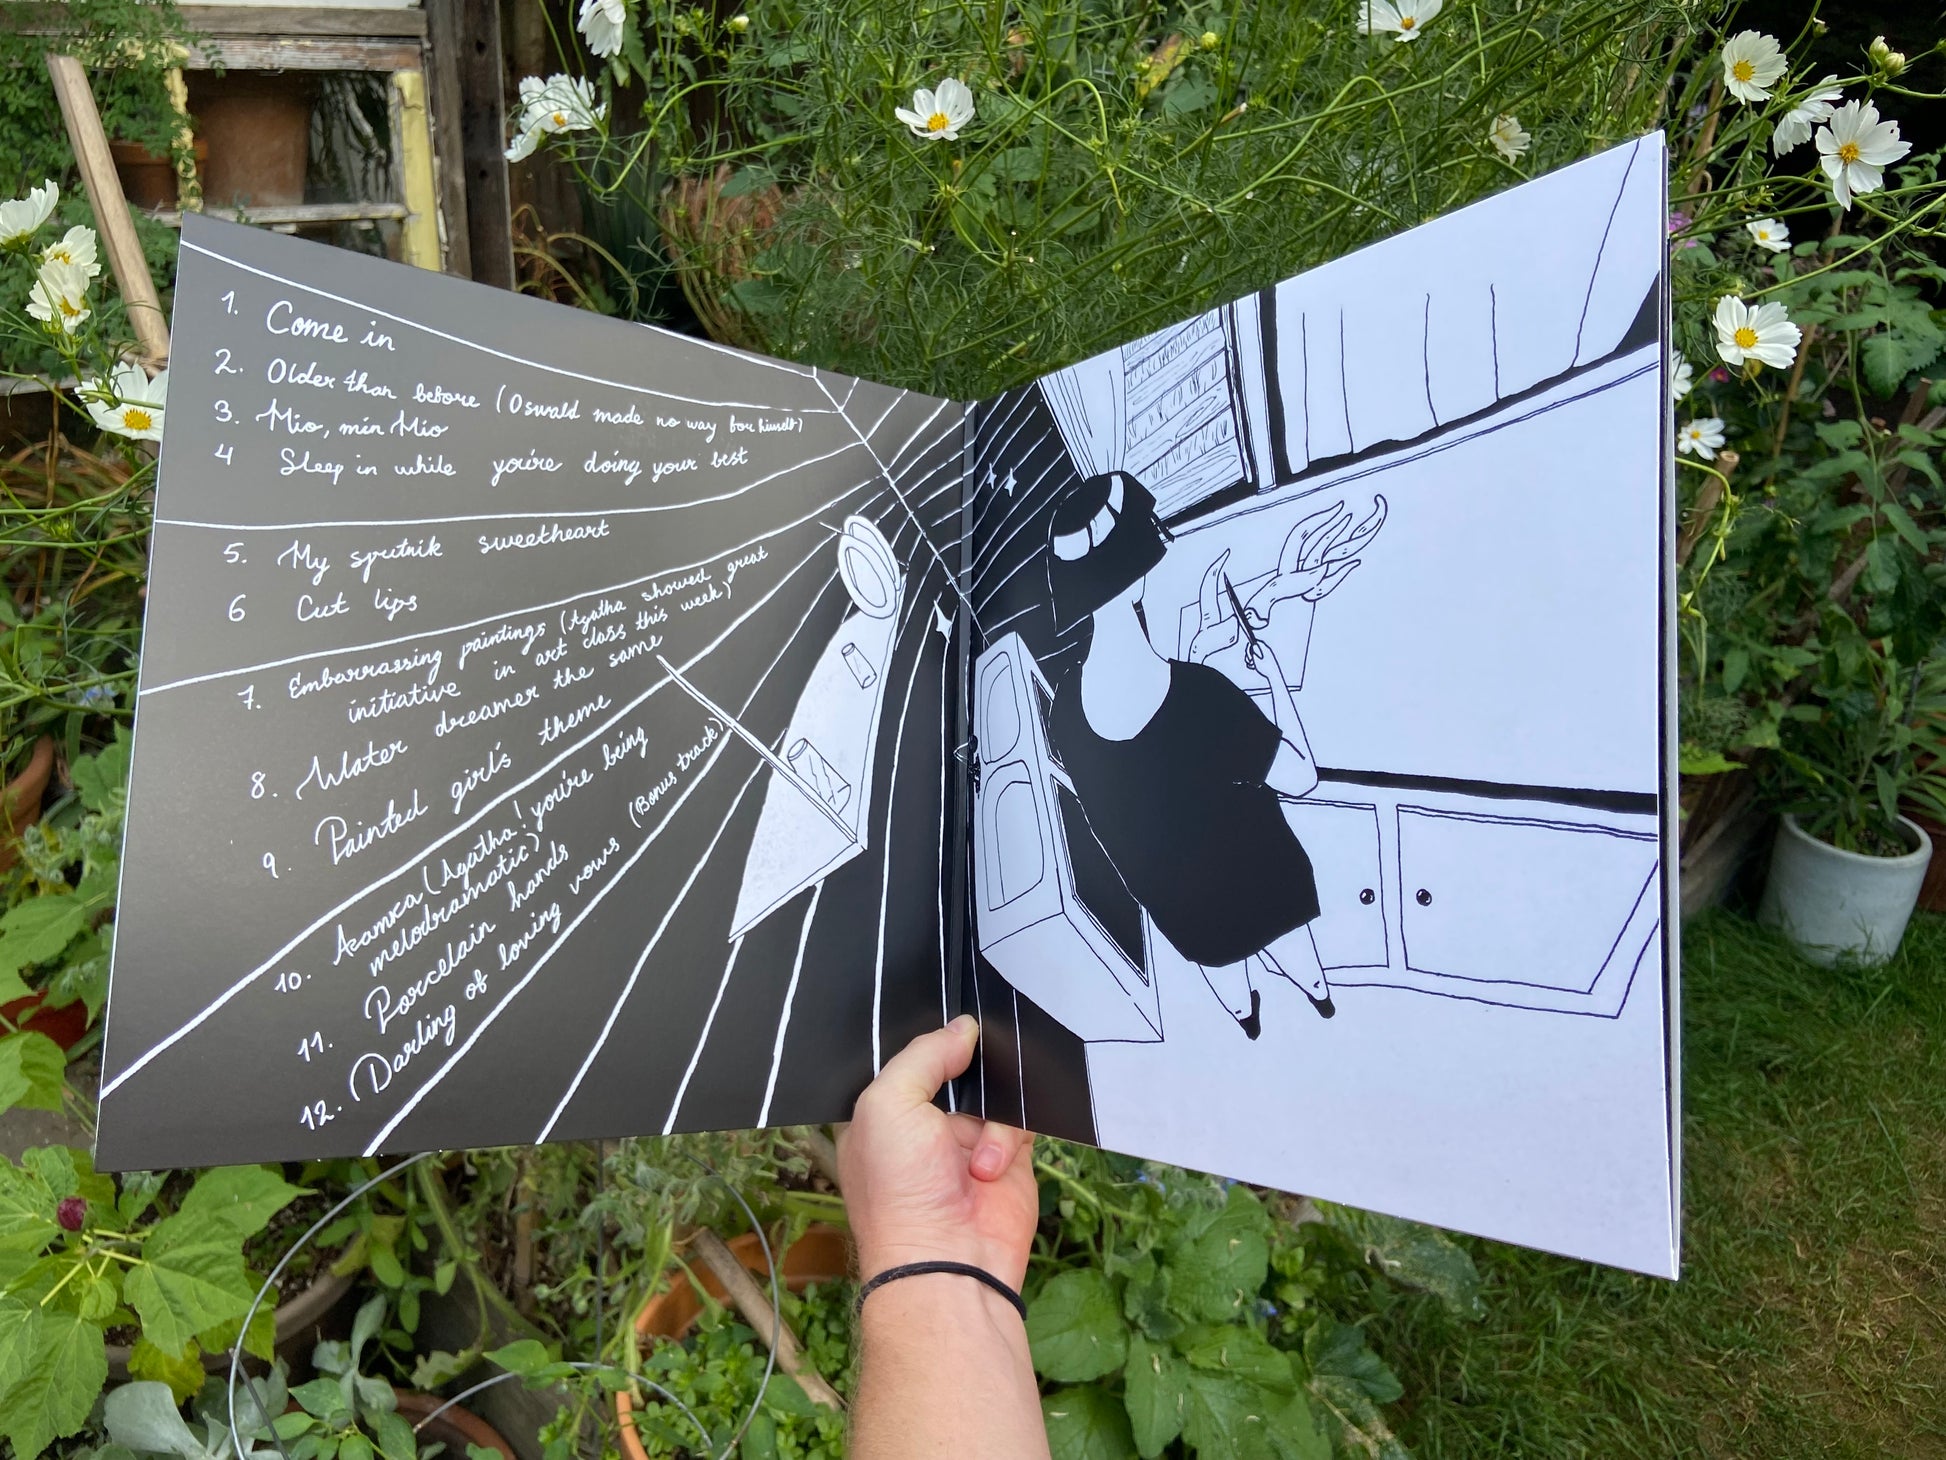 1. Come in
2. Older than before (Oswald made no way for himself)
3. Mio, min Mio
4 Sleep in while you're doing your best
5. My sputnik sweetheart
6 Cut lips
7. Embarrassing paintings (Agatha showed great
initiative in art class this week)
8. Water dreamer the same
9. Painted girl's theme
10. Azamka (Agatha! you're being
melodramatic)
11. Porcelain hands
12. Darling of loving vows (Bonus track)